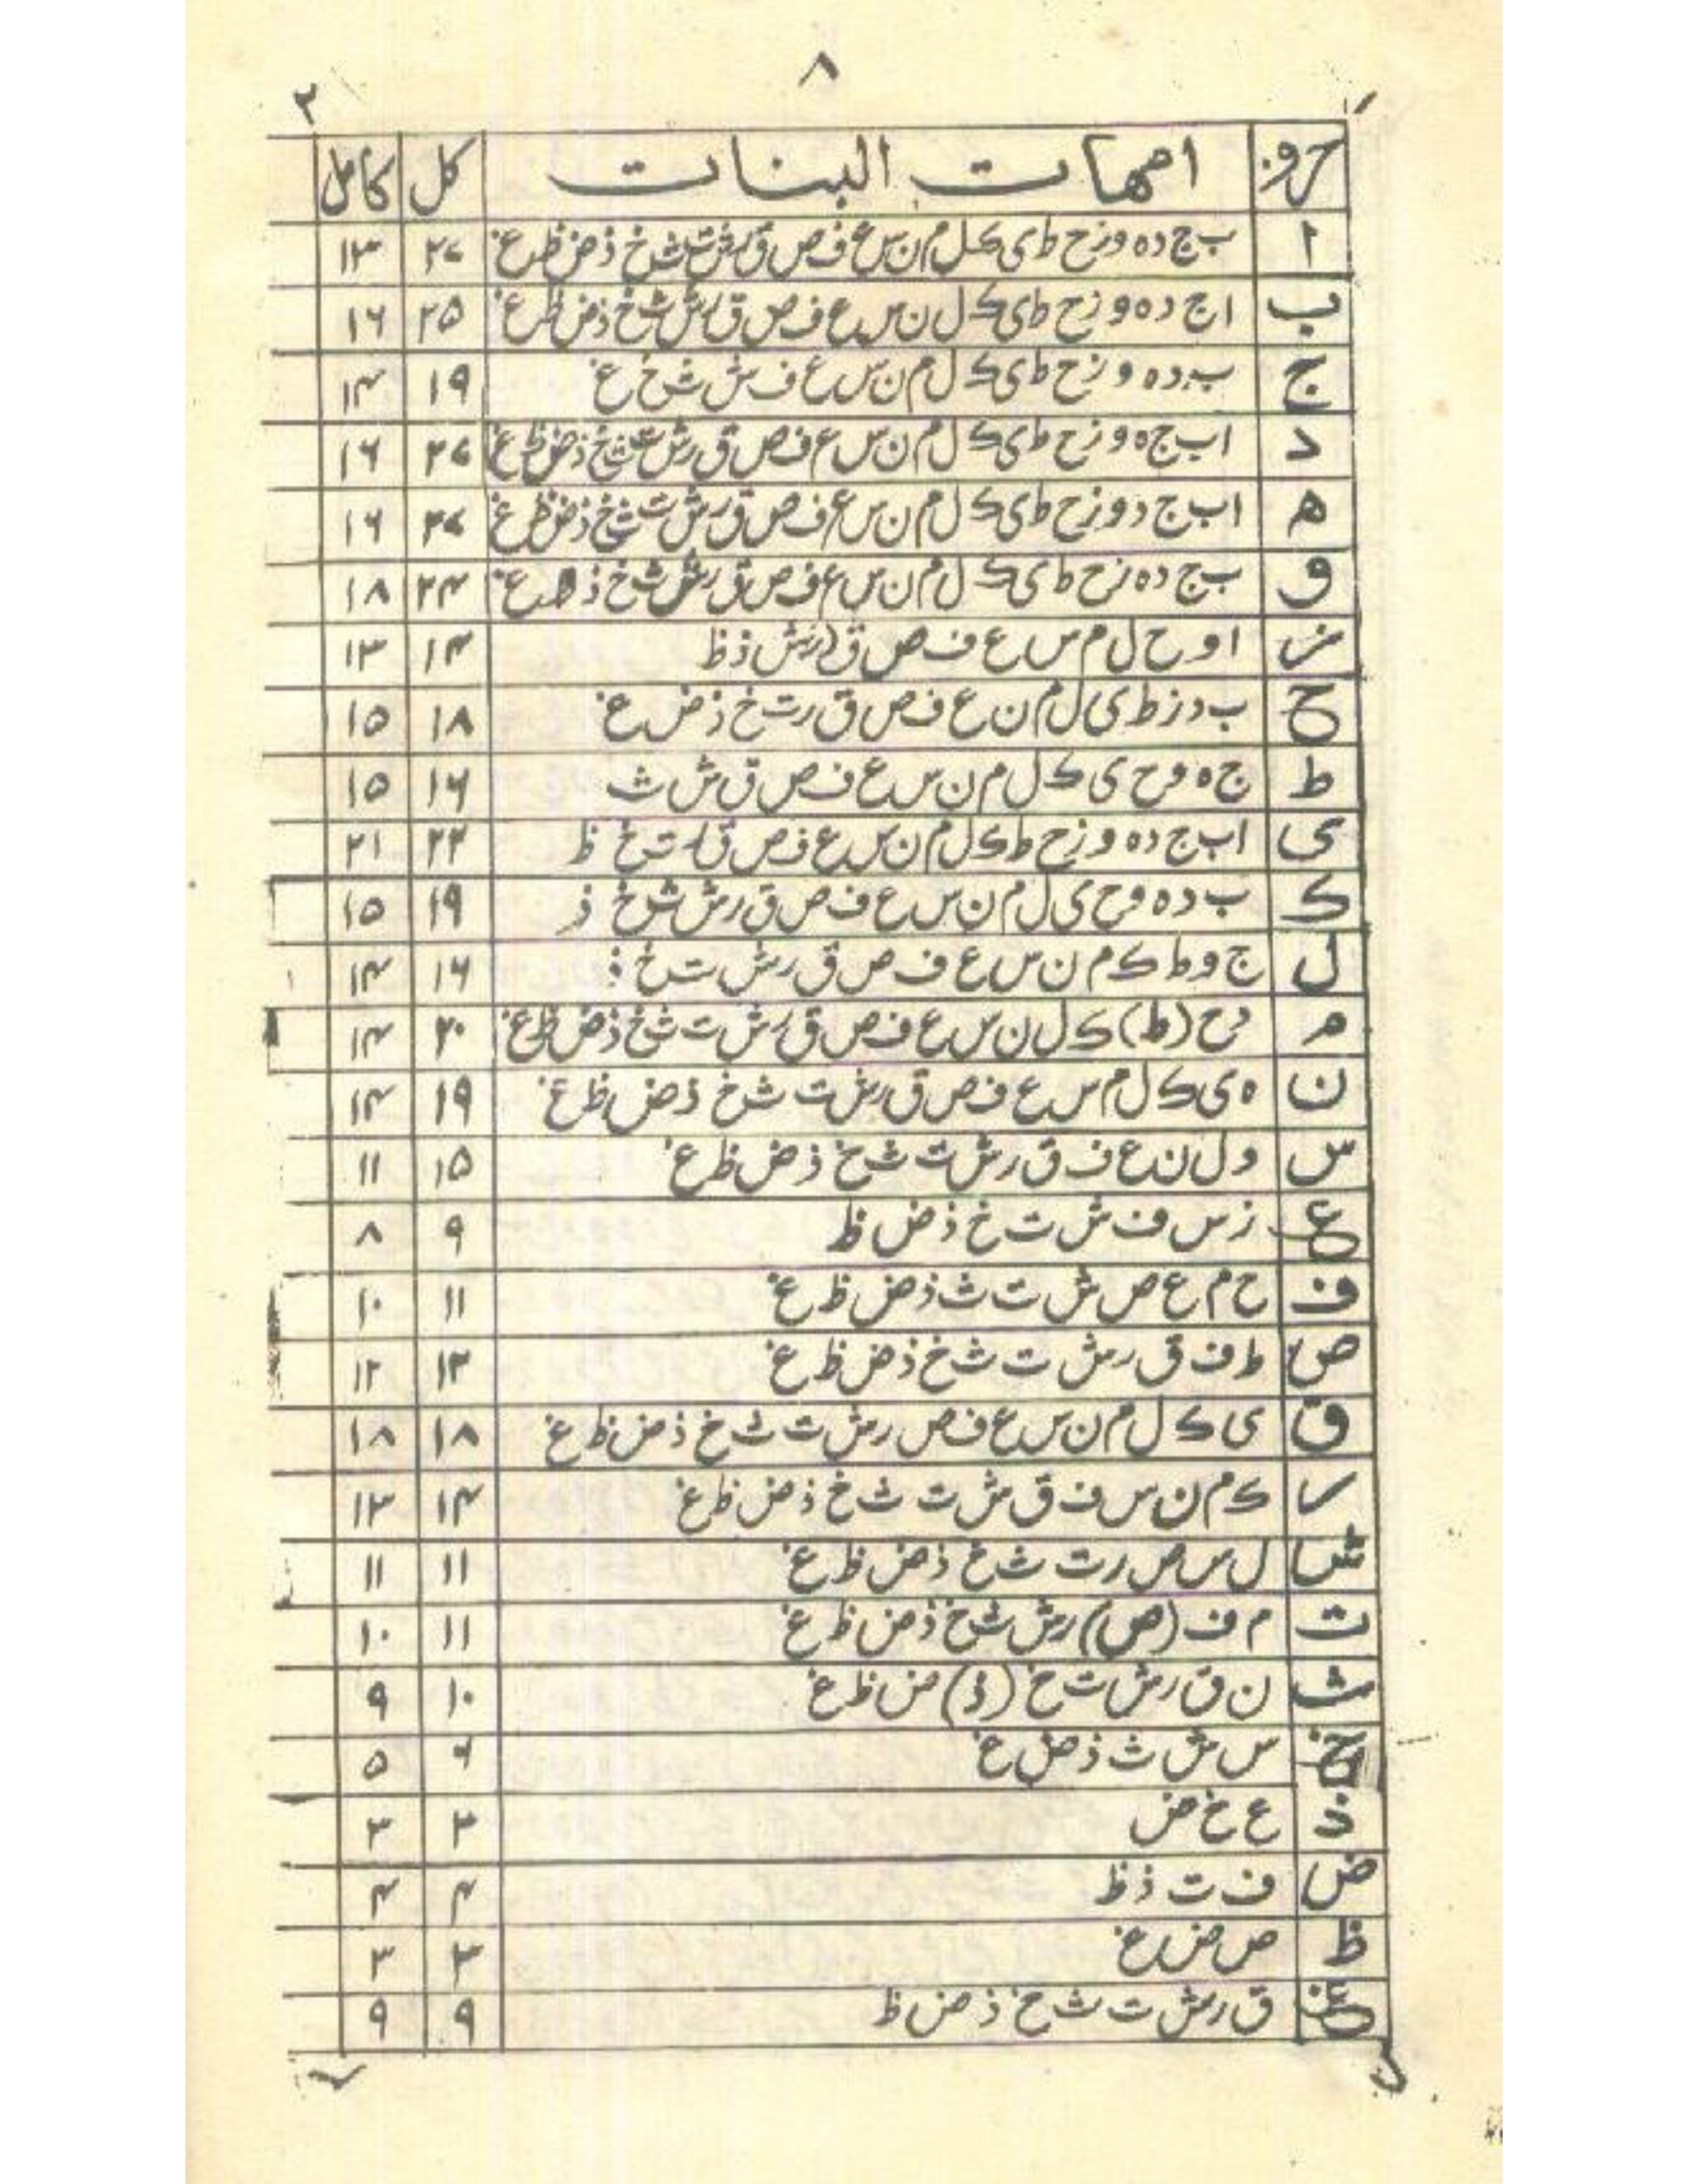 ۸
۲
حروف امهات البنات کل کامل
ا ب ج د ہ و ز ح ط ی ک ل م ن س ع ف ص ق ر ش ت ث خ ذ ض ظ غ ۲۷ ۱۳
ب ا ج د ہ و ز ح ط ی ک ل ن س ع ف ص ق ر ش ث خ ذ ض ظ غ ۲۵ ۱۶
ج ب د ہ و ز ح ط ی ک ل م ن س ع ف ش ث خ غ ۱۹ ۱۴
د ا ب ج ہ و ز ح ط ی ک ل م ن س ع ف ص ق ر ش ت ث خ ذ ض ظ غ ۲۷ ۱۶
ہ ا ب ج د و ز ح ط ی ک ل م ن س ع ف ص ق ر ش ت ث خ ذ ض ظ غ ۲۷ ۱۶
و ب ج د ہ ز ح ط ی ک ل م ن س ع ف ص ق ر ش ث خ ذ غ ۲۴ ۱۸
ز ا و ح ل م س ع ف ص ق ر ش ذ ظ ۱۴ ۱۳
ح ب د ز ط ی ل م ن ع ف ص ق ر ت خ ذ ض غ ۱۸ ۱۵
ط ج ہ و ح ی ک ل م ن س ع ف ص ق ش ث ۱۶ ۱۵
ی ا ب ج د ہ و ز ح ط ک ل م ن س ع ف ص ق ر ت خ ظ ۲۲ ۲۱
ک ب د ہ و ح ی ل م ن س ع ف ص ق ر ش ث خ ذ ۱۹ ۱۵
ل ج و ط ک م ن س ع ف ص ق ر ش ت خ ذ ۱۶ ۱۴
م د ح (ط) ک ل ن س ع ف ص ق ر ش ت ث خ ذ ض ظ غ ۲۰ ۱۴
ن ہ ی ک ل م س ع ف ص ق ر ش ت ث خ ذ ض ظ غ ۱۹ ۱۴
س و ل ن ع ف ق ر ش ت ث خ ذ ض ظ غ ۱۵ ۱۱
ع ز س ف ش ت خ ذ ض ظ ۹ ۸
ف ح م ع ص ش ت ث ذ ض ظ غ ۱۱ ۱۰
ص ط ف ق ر ش ت ث خ ذ ض ظ غ ۱۲ ۱۲
ق ی ک ل م ن س ع ف ص ر ش ت ث خ ذ ض ظ غ ۱۸ ۱۸
ر ک م ن س ف ق ش ت ث خ ذ ض ظ غ ۱۴ ۱۳
ش ل س ص ر ت ث خ ذ ض ظ غ ۱۱ ۱۱
ت م ف (ص) ر ش ث خ ذ ض ظ غ ۱۱ ۱۰
ث ن ق ر ش ت خ (ذ) ض ظ غ ۱۰ ۹
خ س ش ث ذ ض غ ۶ ۵
ذ ع خ ض ۳ ۳
ض ف ت ذ ظ ۴ ۴
ظ ص ض غ ۳ ۳
غ ق ر ش ت ث خ ذ ض ظ ۹ ۹